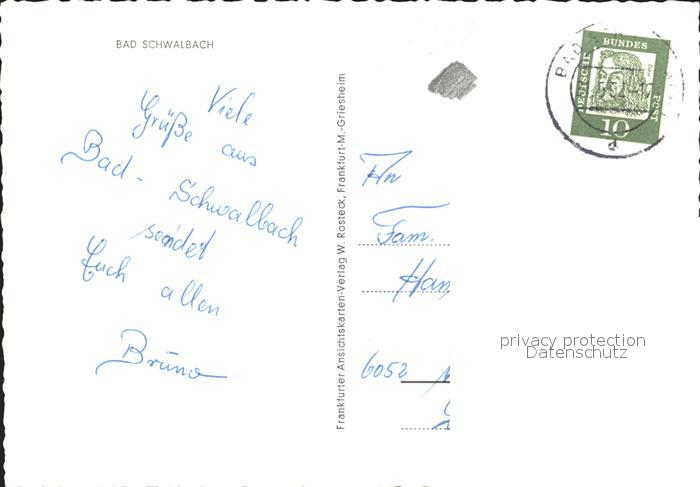 BAD SCHWALBACH
Viele
Grüße aus
Bad - Schwalbach
sendet
Euch allen
Bruno
Frankfurter Ansichtskarten-Verlag W. Rosteck, Frankfurt-M.-Griesheim
An
Fam.
6052
DEUTSCHE BUNDESPOST
10
BAD
a
privacy protection
Datenschutz